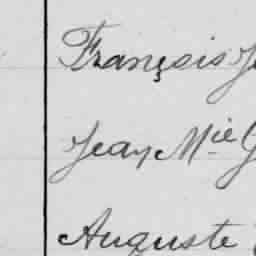 François Je
Jean Mie G
Auguste